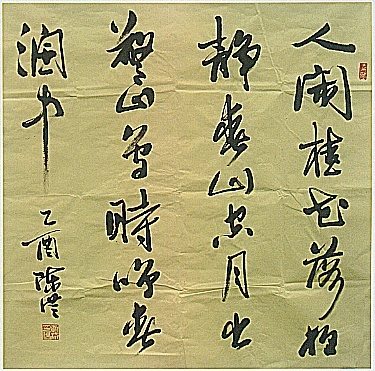 人閑桂花落夜
静春山空月出
驚山鳥時鳴春
澗中
乙酉